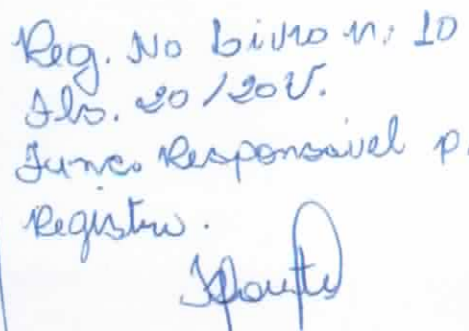 Reg. No Livro n: 10
Fls. 20/20V.
Func. Responsavel p.
Registro.